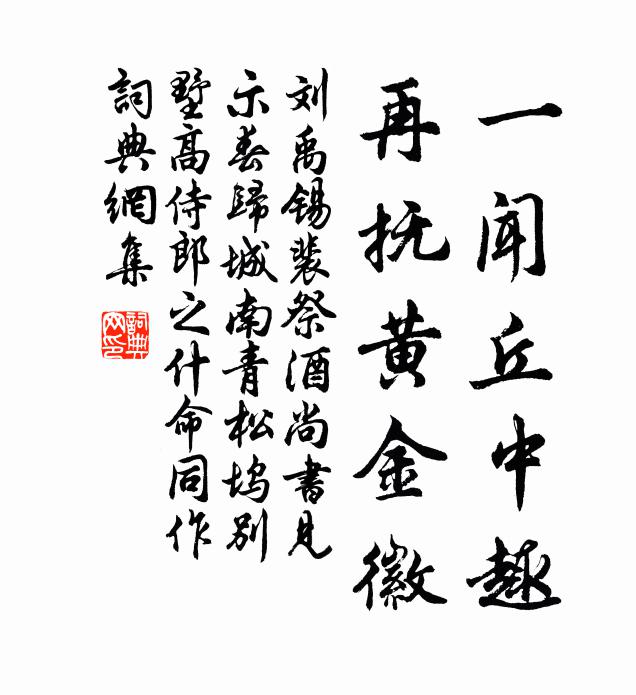 一闻丘中趣
再抚黄金徽
刘禹锡裴祭酒尚书见
示春歸城南青松坞别
墅高侍郎之什命同作
詞典網集
詞典
网印